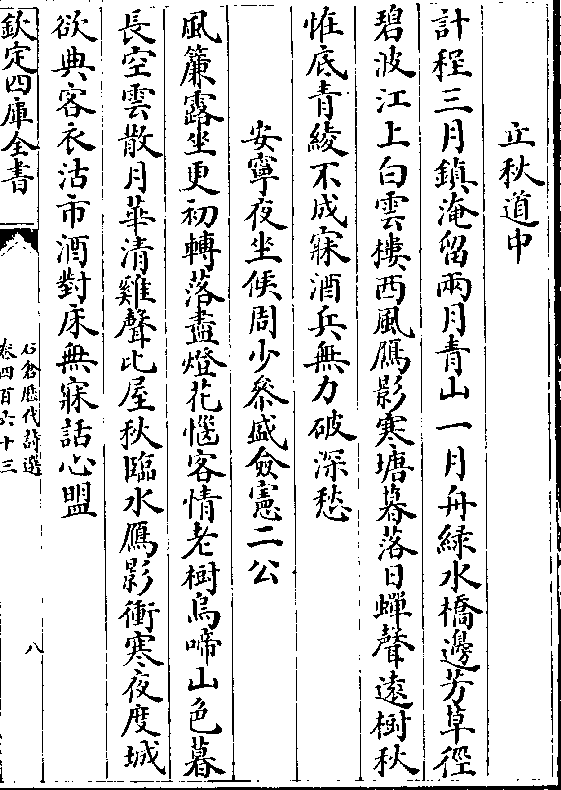 立秋道中
計程三月鎮淹留兩月青山一月舟綠水橋邊芳草徑
碧波江上白雲樓西風鴈影寒塘暮落日蟬聲遠樹秋
惟底青綾不成寐酒兵無力破深愁
安寧夜坐俟周少參盛僉憲二公
風簾露坐更初轉落盡燈花惱客情老樹烏啼山色暮
長空雲散月華清雞聲比屋秋臨水鴈影衝寒夜度城
欲典客衣沽市酒對床無寐話心盟
欽定四庫全書
石倉歷代詩選
卷四百六十三
八